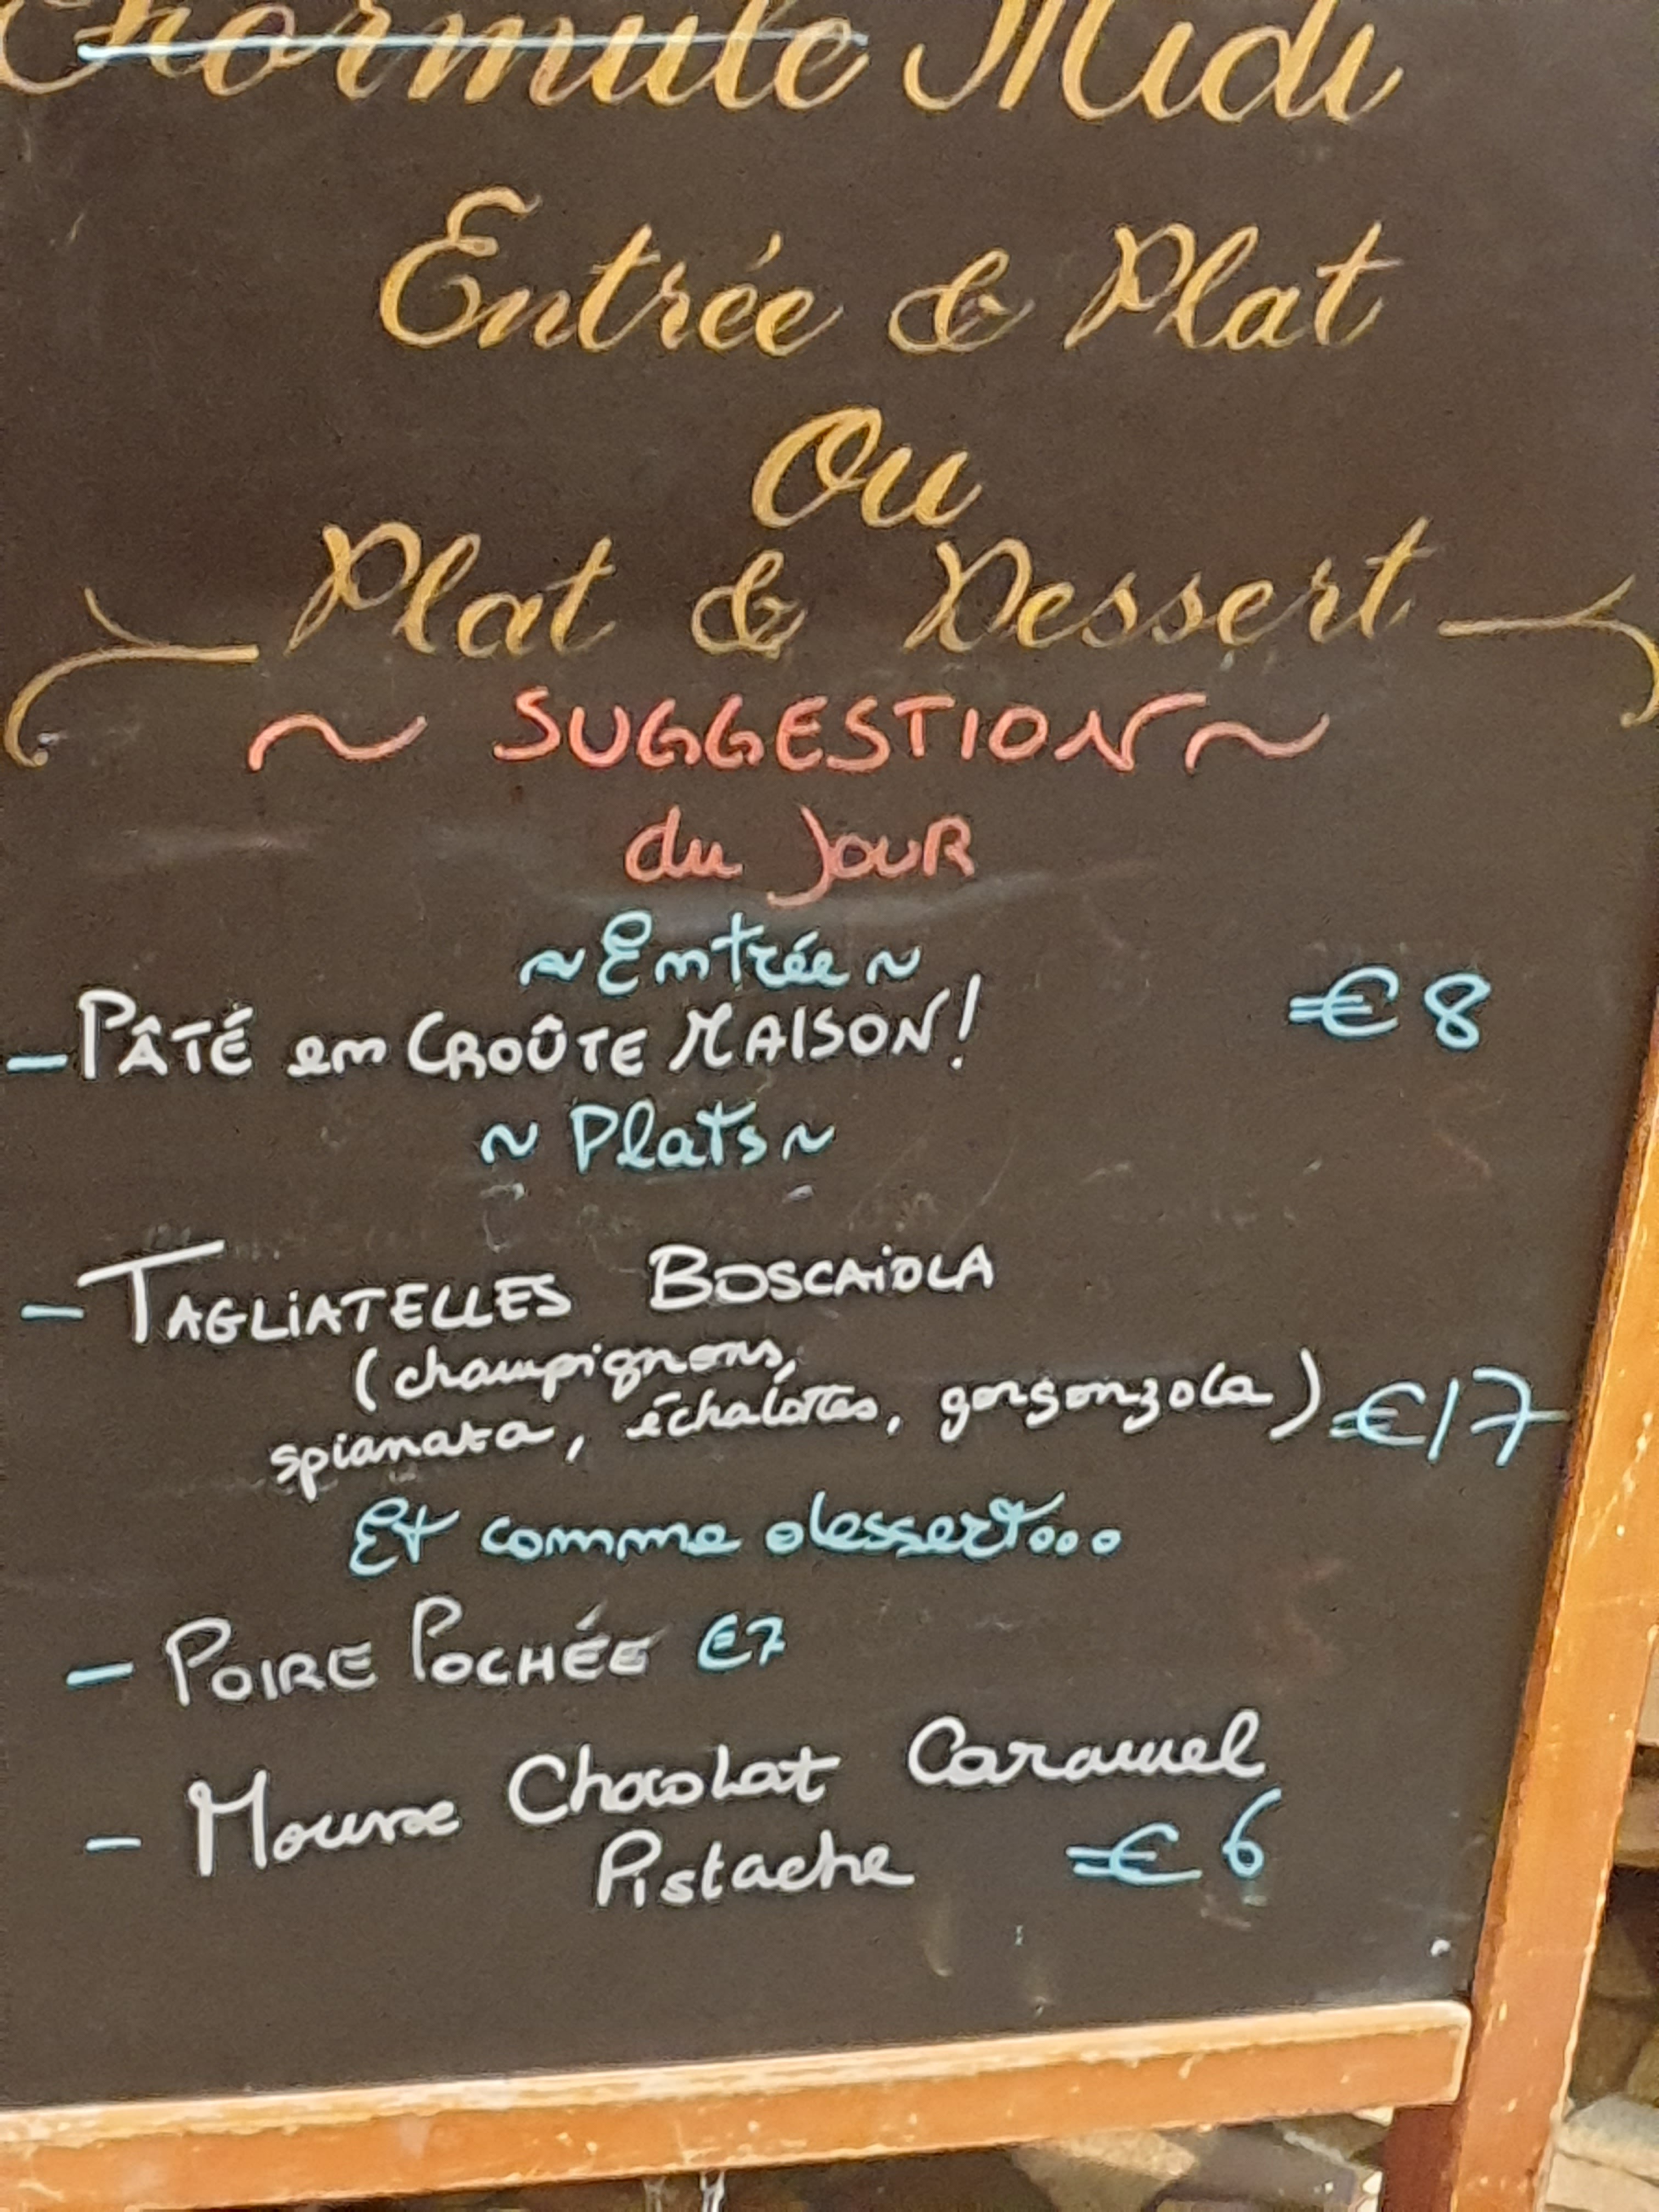 Formule Midi
Entrée & Plat
Ou
Plat & Dessert
~ SUGGESTION ~
du JOUR
~ Entrée ~
- PÂTÉ en CROÛTE MAISON! €8
~ Plats ~
- TAGLIATELLES BOSCAIOLA
(champignons,
spianata, échalottes, gorgonzola) €17
Et comme dessert...
- POIRE POCHÉE €7
- Mousse Chocolat Caramel
Pistache €6